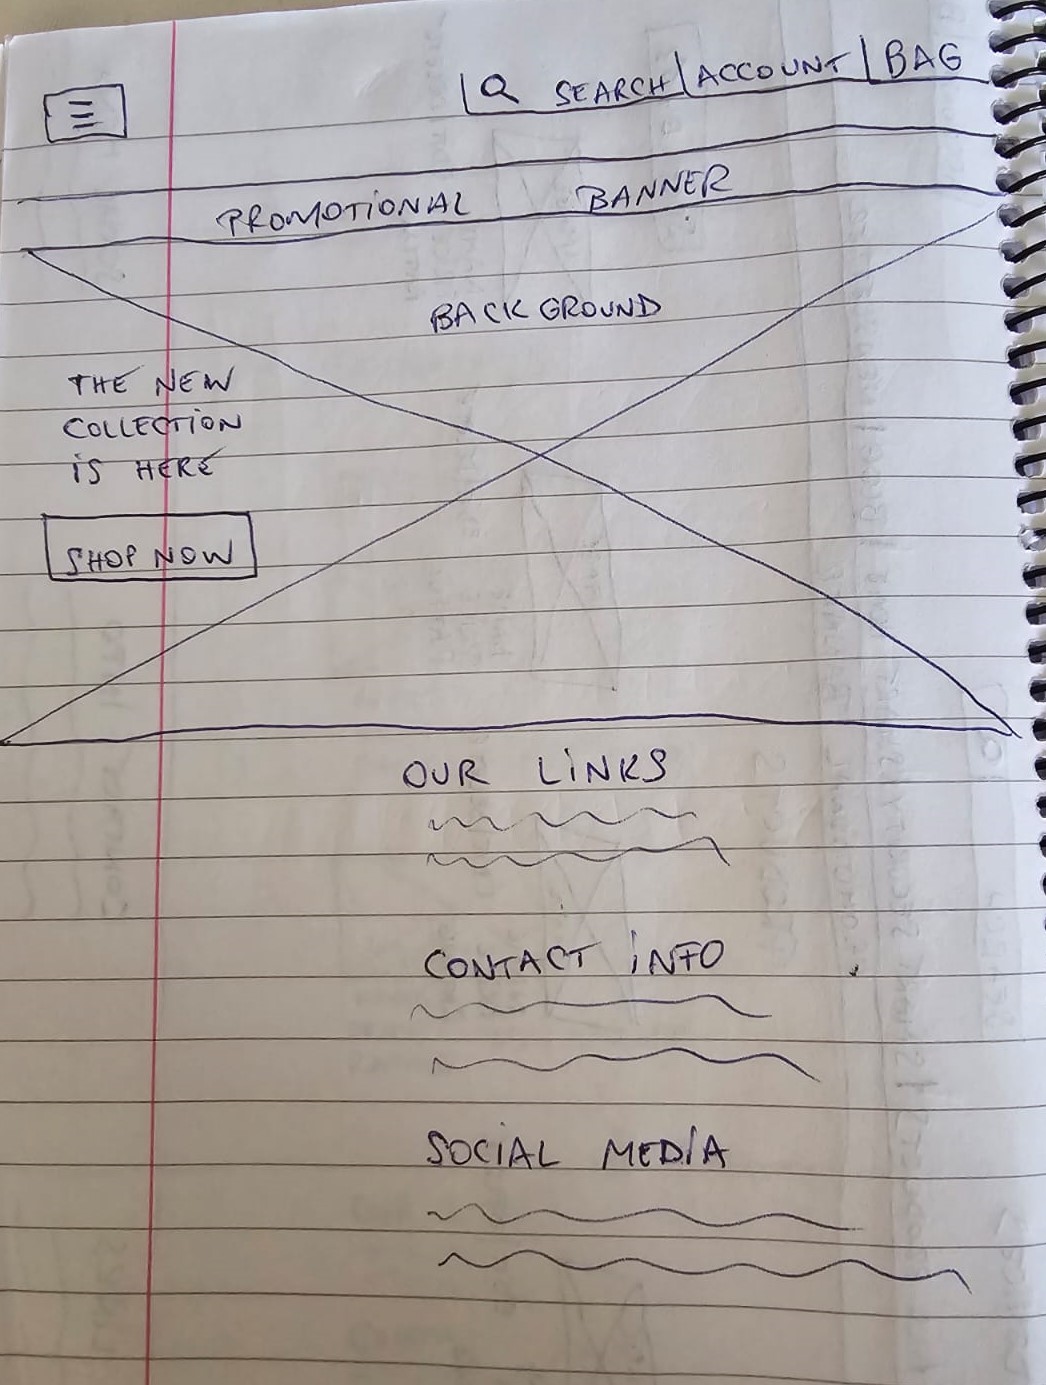 SEARCH | ACCOUNT | BAG
PROMOTIONAL BANNER
BACKGROUND
THE NEW
COLLECTION
IS HERE
SHOP NOW
OUR LINKS
CONTACT INFO
SOCIAL MEDIA